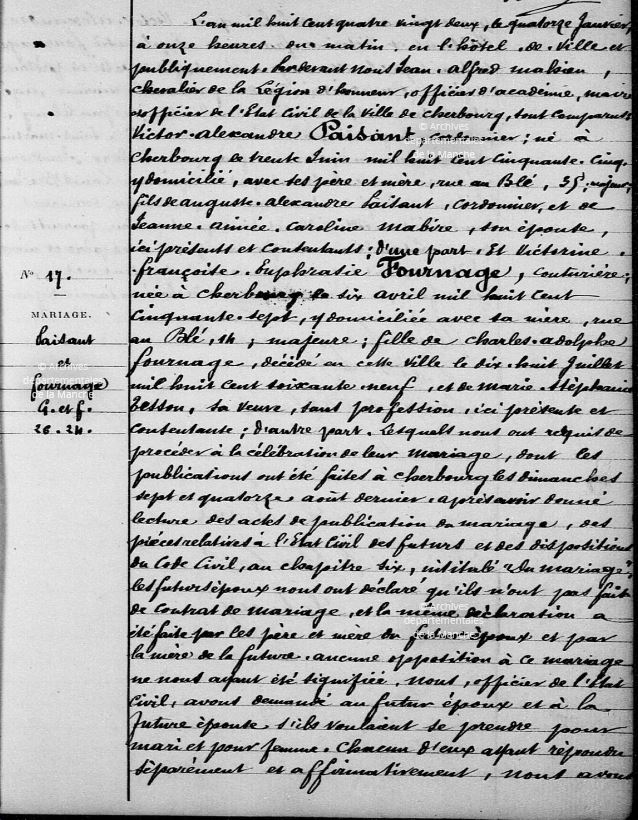 L'an mil huit cent quatre vingt deux, le quatorze Janvier,
à onze heures du matin, en l'hôtel de Ville et
publiquement. Pardevant Nous Jean. Alfred Mahieu,
chevalier de la Légion d'honneur, officier d'académie, maire
officier de l'Etat Civil de la Ville de Cherbourg, sont comparus
Victor. Alexandre Paisant, cordonnier; né à
Cherbourg le trente Juin mil huit cent cinquante. Cinq,
y domicilié, avec ses père et mère, rue au Blé, 35, majeur;
fils de auguste. Alexandre Paisant, cordonnier, et de
Jeanne. Aimée. Caroline Mabire, son épouse,
ici présents et contentants; d'une part. Et Victorine.
françoise. Euphrasie Fournage, couturière;
née à Cherbourg le six avril mil huit cent
cinquante. sept, y domiciliée avec sa mère, rue
au Blé, 14, majeure; fille de Charles. adolphe
fournage, décédé en cette ville le dix. huit Juillet
mil huit cent soixante. neuf, et de Marie. Stéphanie
Besson, sa veuve, sans profession, ici présente et
contentante; d'autre part. Lesquels nous ont requis de
procéder à la célébration de leur mariage, dont les
publications ont été faites à Cherbourg les dimanches
sept et quatorze août dernier. après avoir donné
lecture des actes de publication du mariage, des
pièces relatives à l'Etat Civil des futurs et des dispositions
du Code Civil, au chapitre six, intitulé "Du Mariage",
les futurs époux nous ont déclaré qu'ils n'ont pas fait
de contrat de mariage, et la même déclaration a
été faite par les père et mère du futur époux et par
la mère de la future. aucune opposition à ce mariage
ne nous ayant été signifiée, Nous, officier de l'Etat
Civil, avons demandé au futur époux et à la
future épouse s'ils voulaient se prendre pour
mari et pour femme. Chacun d'eux ayant répondu
séparément et affirmativement, nous avons
N° 17.
MARIAGE.
Paisant
et
fournage
G. et f.
26. 24.
© Archives
départementales
de la Manche
© Archives
départementales
de la Manche
© Archives
départementales
de la Manche